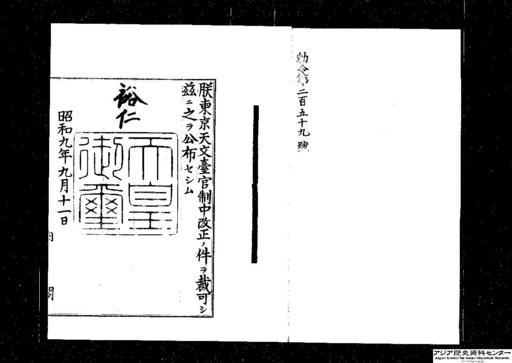 勅令第二百五十九號
朕東京天文臺官制中改正ノ件ヲ裁可シ
茲ニ之ヲ公布セシム
裕仁
天皇
御璽
昭和九年九月十一日
内閣
アジア歴史資料センター
Japan Center for Asian Historical Records